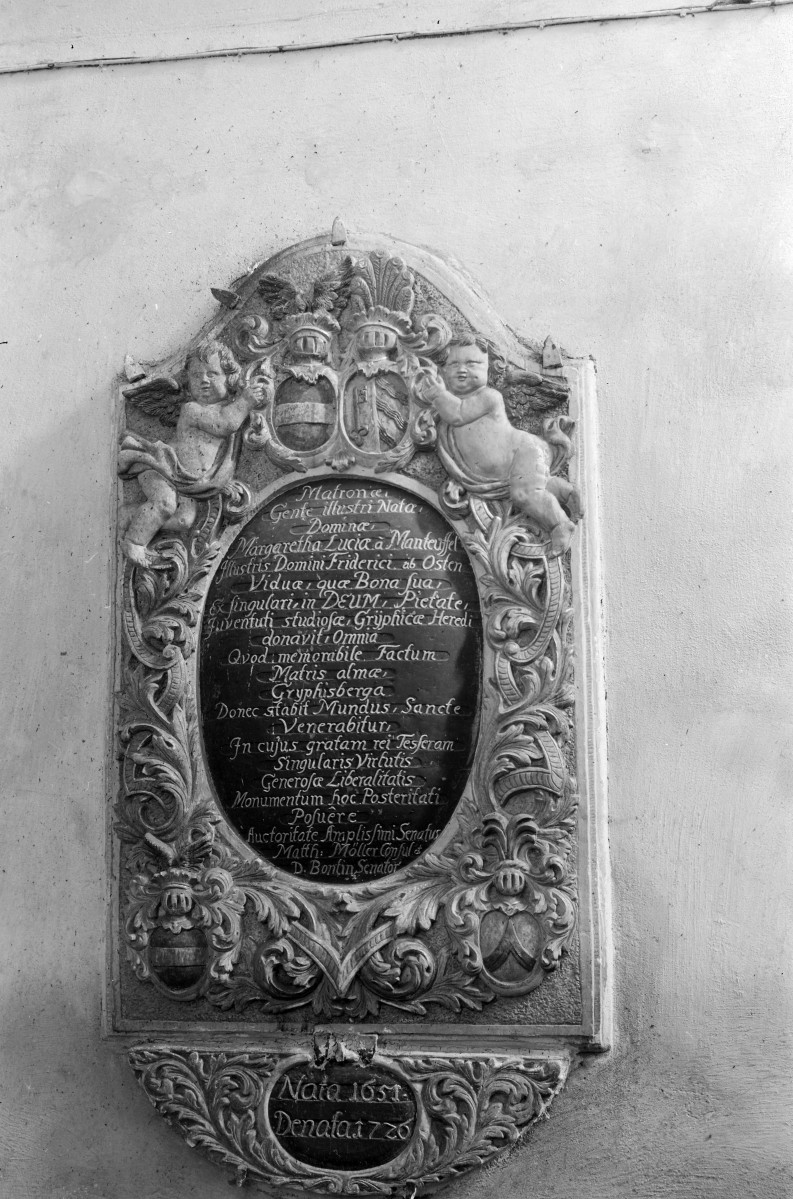 Matronæ,
Gente illustri Nata,
Dominæ,
Margaretha Luciæ à Manteuffel
Illustris Domini Friderici. ab Osten
Viduæ, quæ Bona sua,
Ex singulari, in DEUM, Pietate,
Juventuti studiosæ, Gryphicæ Heredi
donavit. Omnia
Qvod memorabile Factum
Matris almæ,
Gryphisberga
Donec stabit Mundus, Sancte
Venerabitur,
In cujus gratam rei Tesseram
Singularis Virtutis
Generosæ Liberalitatis
Monumentum hoc Posteritati
Posuêre
Auctoritate Amplissimi Senatus
Matth: Möller Consul &
D. Bontin Senator
Nata 1651.
Denata. 1726